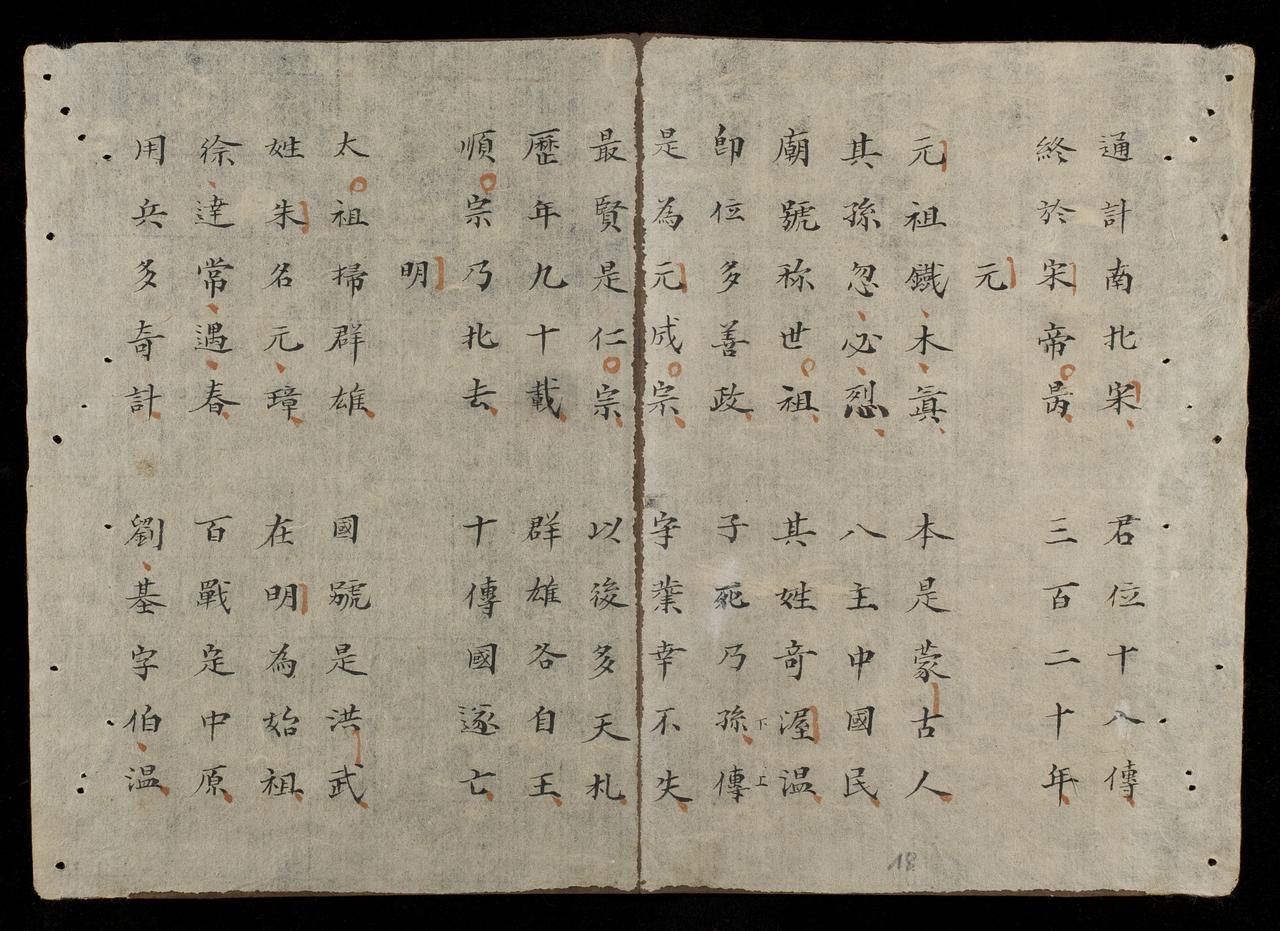 通計南北宋 君位十八傳
終於宋帝昺 三百二十年
元
元祖鐵木真 本是蒙古人
其孫忽必烈 八主中國民
廟號称世祖 其姓奇渥温
即位多善政 子死乃孫下傳上
是為元成宗 守業幸不失
最賢是仁宗 以後多天札
歷年九十載 群雄各自王
順宗乃北去 十傳國遂亡
明
太祖掃群雄 國號是洪武
姓朱名元璋 在明為始祖
徐達常遇春 百戰定中原
用兵多奇計 劉基字伯温
18